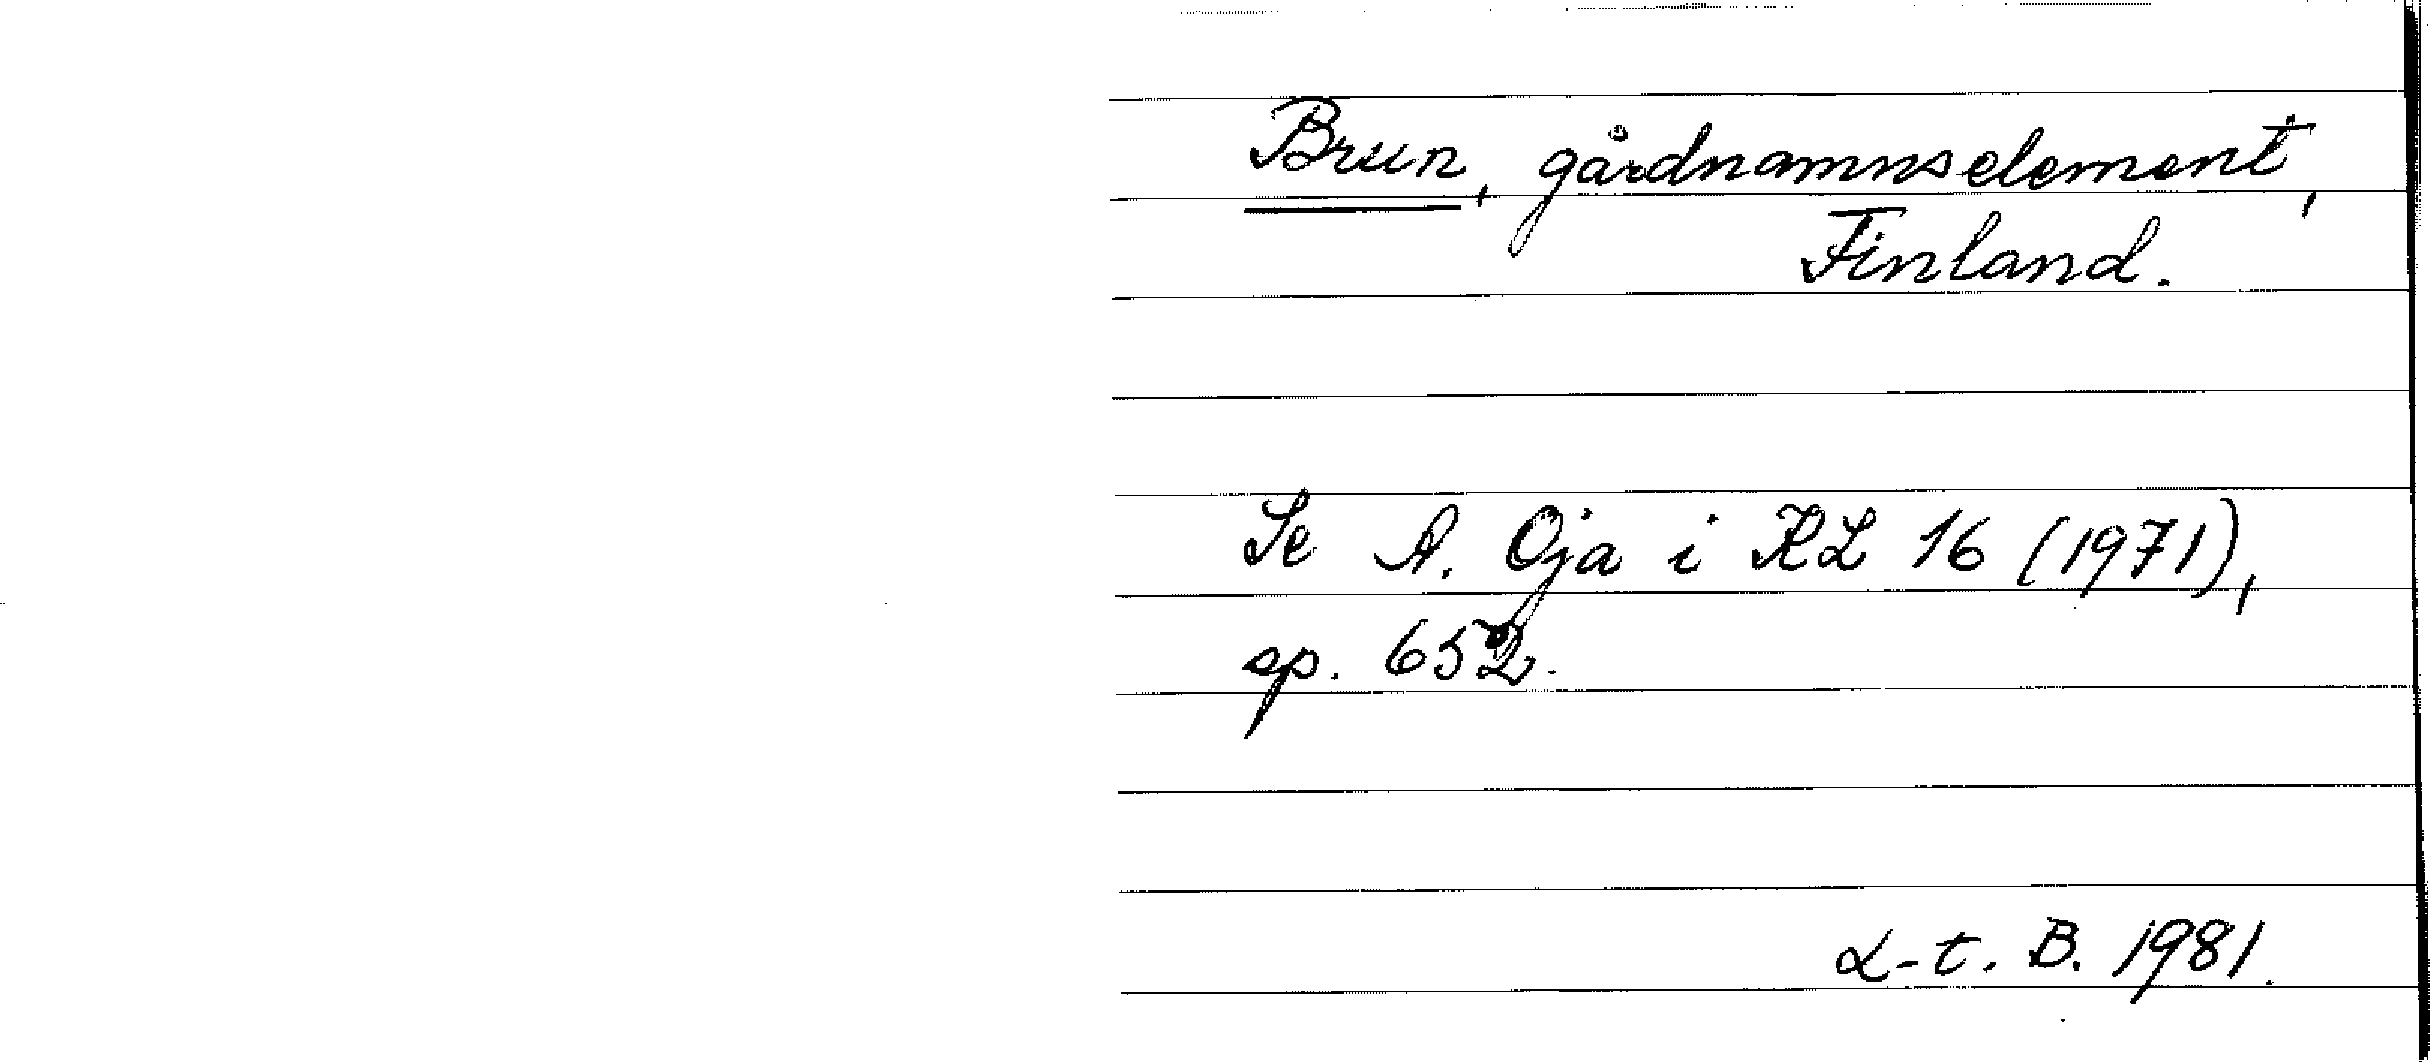 Brun, gårdnamnselement,
Finland.
Se A. Oja i KL 16 (1971),
sp. 652.
L-t. B. 1981.